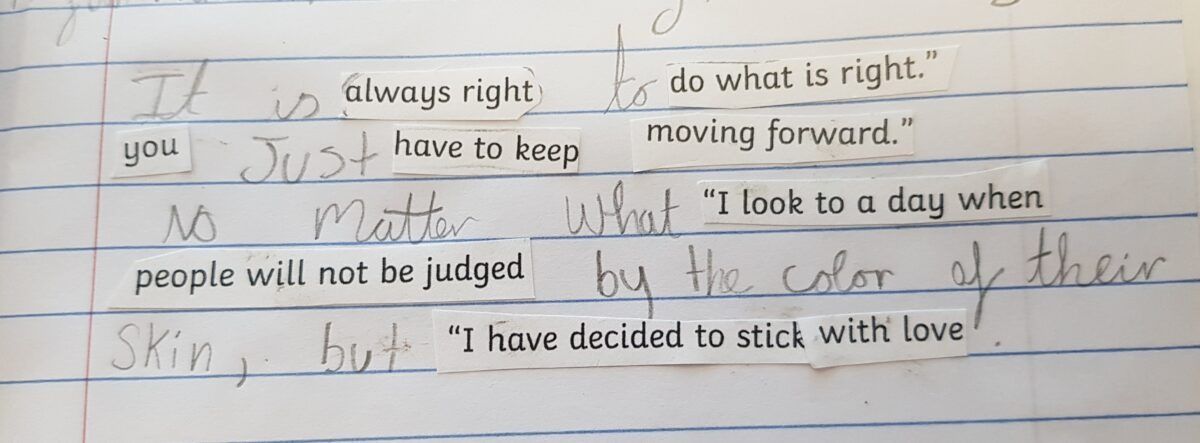 It is always right to do what is right.”
you Just have to keep moving forward.”
No Matter What “I look to a day when
people will not be judged by the color of their
Skin, but “I have decided to stick with love .